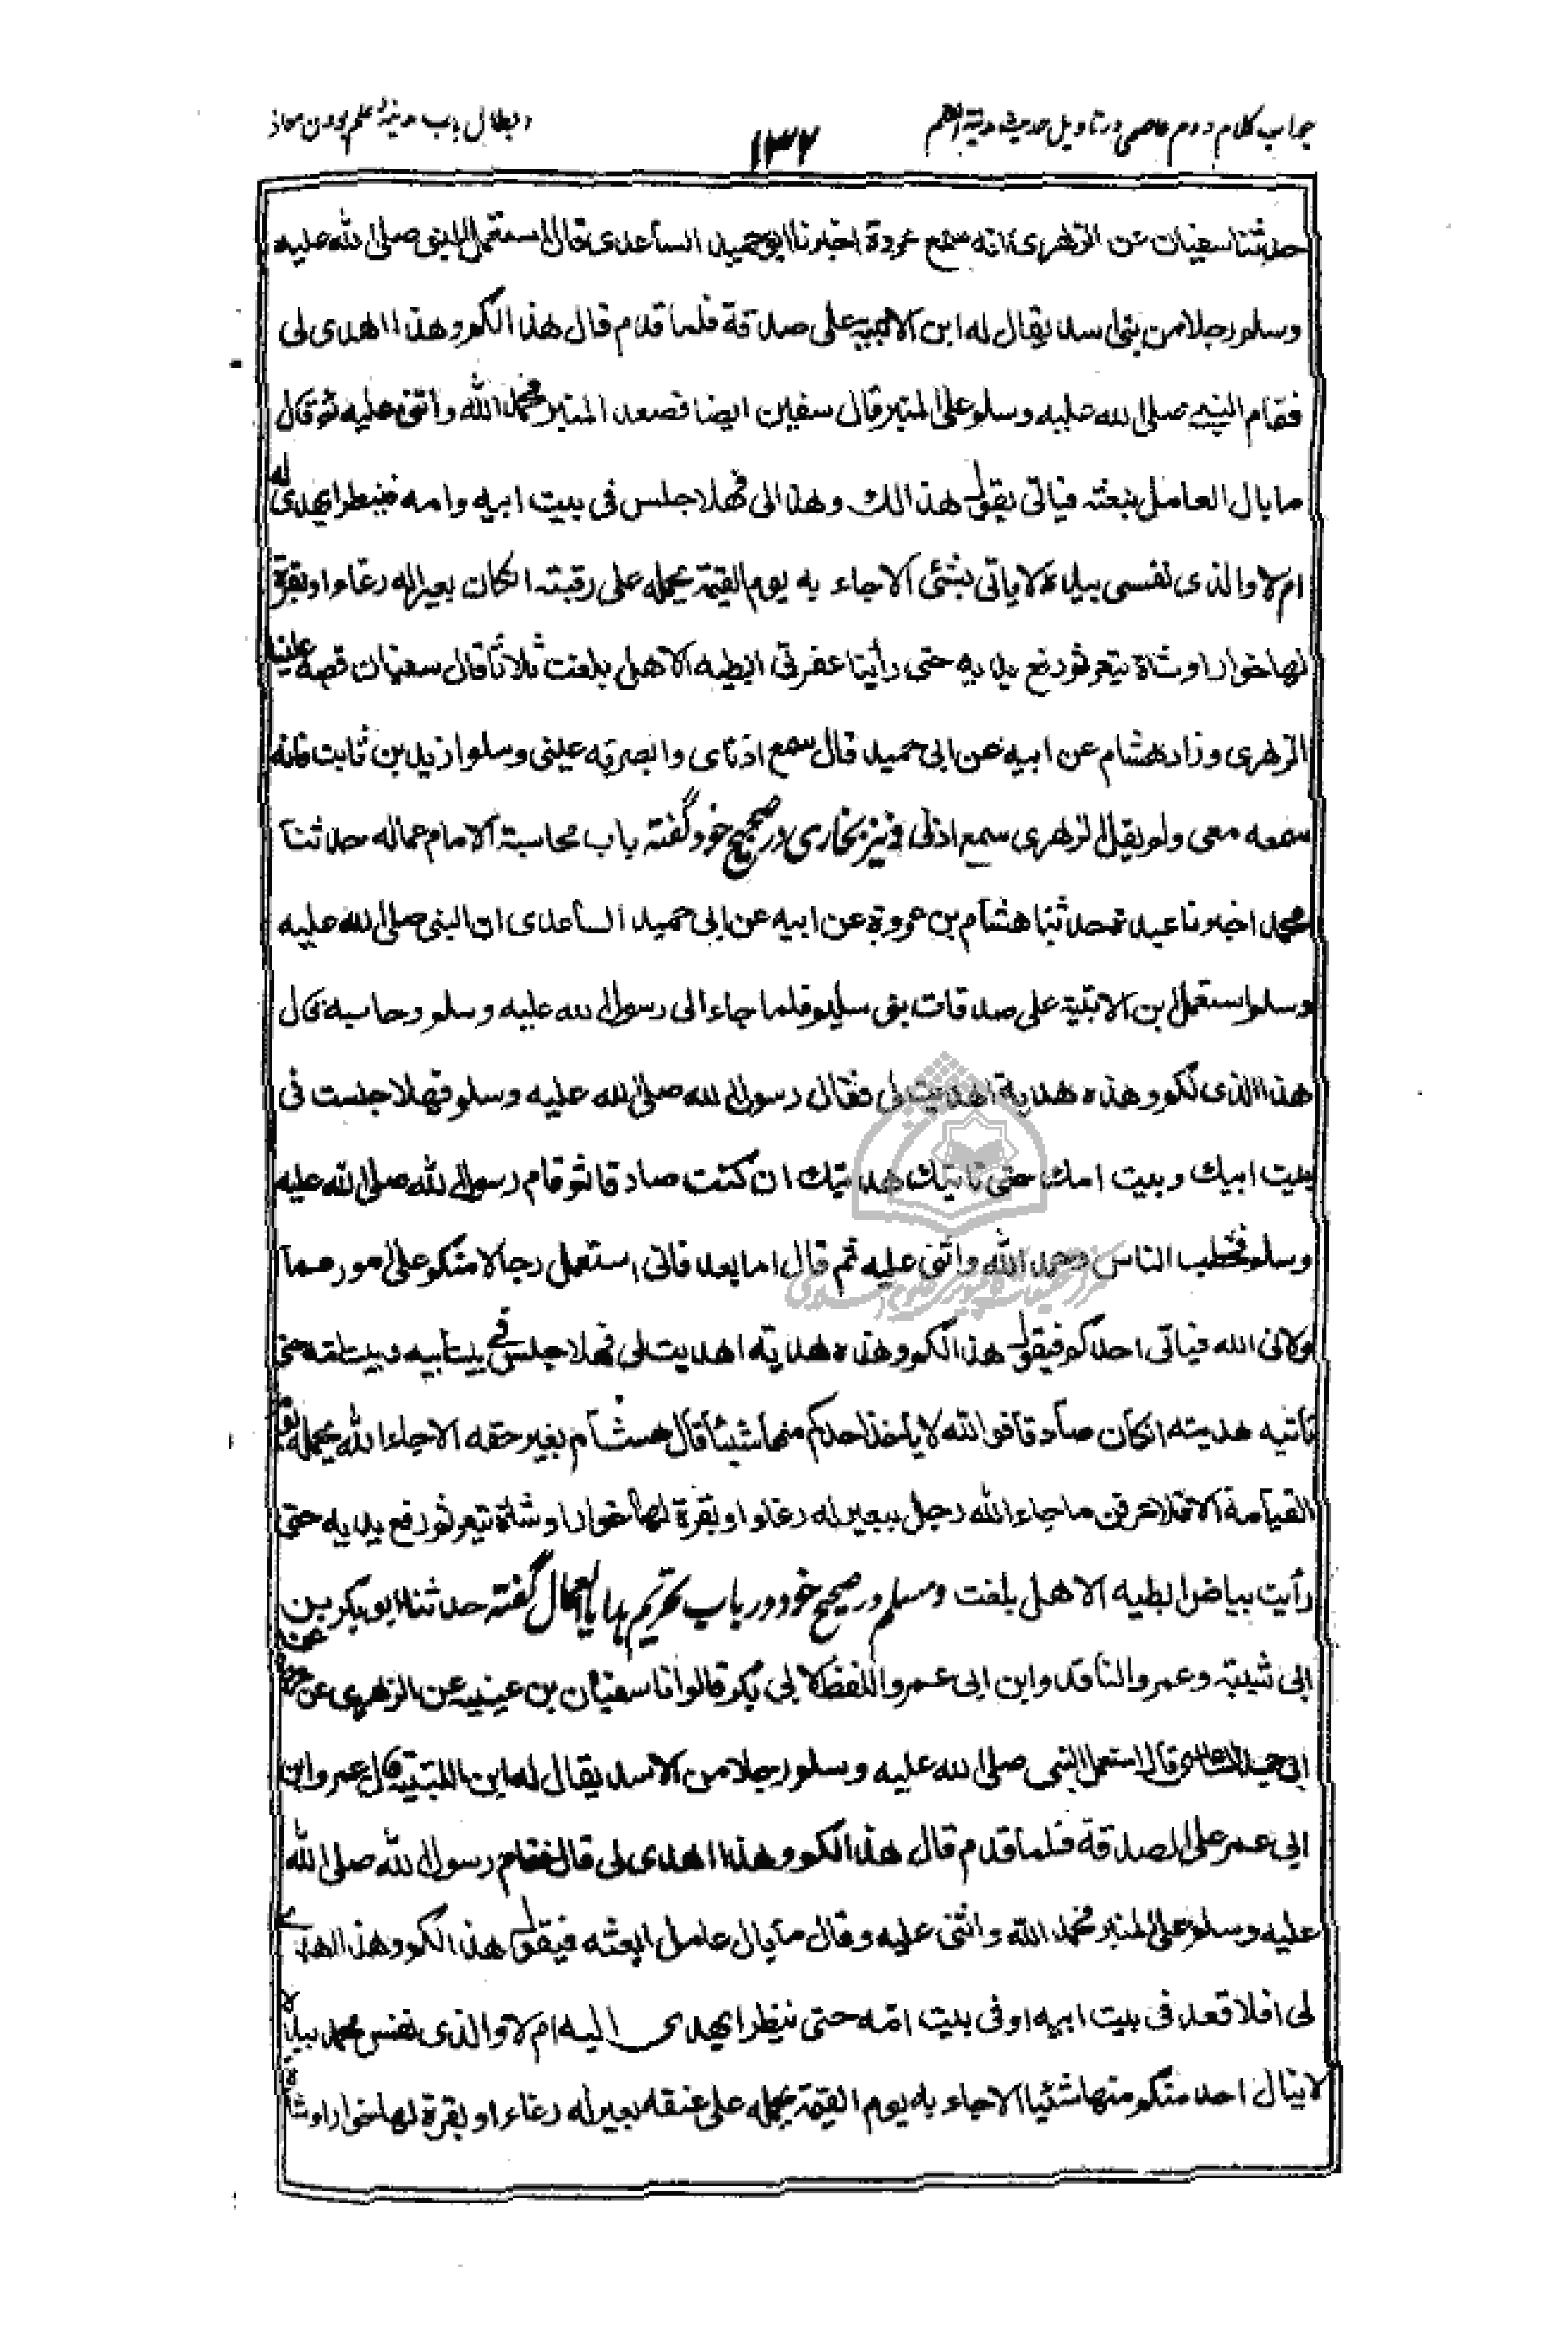 جواب کلام دوم عاصمی در تاویل حدیث مدینة العلم
۱۳۲
ابطال باب مدینهٔ علم بودن معاذ
حدثنا سفیان عن الزهری انه سمع عروة اخبرنا ابو حمید الساعدی قال استعمل النبی صلی الله علیه
وسلم رجلا من بنی اسد یقال له ابن الاتبیة علی صدقة فلما قدم قال هذا لکم وهذا اهدی لی
فقام النبی صلی الله علیه وسلم علی المنبر قال سفین ایضا فصعد المنبر فحمد الله واثنی علیه ثم قال
ما بال العامل نبعثه فیاتی یقول هذا لک وهذا لی فهلا جلس فی بیت ابیه وامه فینظر ایهدی له
ام لا والذی نفسی بیده لا یاتی بشئ الا جاء به یوم القیمة یحمله علی رقبته انکان بعیرا له رغاء او بقرة
لها خوار او شاة تیعر ثم رفع یدیه حتی رأینا عفرتی ابطیه الا هل بلغت ثلاثا قال سفیان قصه علینا
الزهری وزاد هشام عن ابیه عن ابی حمید قال سمع اذنای وابصرته عینی وسلوا زید بن ثابت فانه
سمعه معی ولم یقل الزهری سمع اذنی و نیز بخاری در صحیح خود گفته باب محاسبة الامام عماله حدثنا
محمد اخبرنا عبدة حدثنا هشام بن عروة عن ابیه عن ابی حمید الساعدی ان النبی صلی الله علیه
وسلم استعمل ابن الاتبیة علی صدقات بنی سلیم فلما جاء الی رسول الله علیه وسلم وحاسبه قال
هذا الذی لکم وهذه هدیة اهدیت لی فقال رسول الله صلی الله علیه وسلم فهلا جلست فی
بیت ابیک وبیت امک حتی تاتیک هدیتک ان کنت صادقا ثم قام رسول الله صلی الله علیه
وسلم فخطب الناس وحمد الله واثنی علیه ثم قال اما بعد فانی استعمل رجالا منکم علی امور مما
ولانی الله فیاتی احدکم فیقول هذا لکم وهذه هدیة اهدیت لی فهلا جلس فی بیت ابیه وبیت امه حتی
تأتیه هدیته انکان صادقا فوالله لا یأخذ احدکم منها شیئا قال هشام بغیر حقه الا جاء الله یحمله یوم
القیامة الا فلاعرفن ما جاء الله رجل ببعیر له رغاء او بقرة لها خوار او شاة تیعر ثم رفع یدیه حتی
رأیت بیاض ابطیه الا هل بلغت و مسلم در صحیح خود در باب تحریم هدایا العمال گفته حدثنا ابو بکر بن
ابی شیبة وعمرو الناقد وابن ابی عمر واللفظ لابی بکر قالوا نا سفیان بن عیینه عن الزهری عن عروة عن
ابی حمید الساعدی قال استعمل النبی صلی الله علیه وسلم رجلا من الاسد یقال له ابن اللتبیة قال عمرو وابن
ابی عمر علی الصدقة فلما قدم قال هذا لکم وهذا اهدی لی قال فقام رسول الله صلی الله
علیه وسلم علی المنبر فحمد الله واثنی علیه وقال ما بال عامل ابعثه فیقول هذا لکم وهذا اهدی
لی افلا قعد فی بیت ابیه او فی بیت امه حتی ینظر ایهدی الیه ام لا والذی نفس محمد بیده
لا ینال احد منکم منها شیئا الا جاء به یوم القیمة یحمله علی عنقه بعیر له رغاء او بقرة لها خوار او شاة